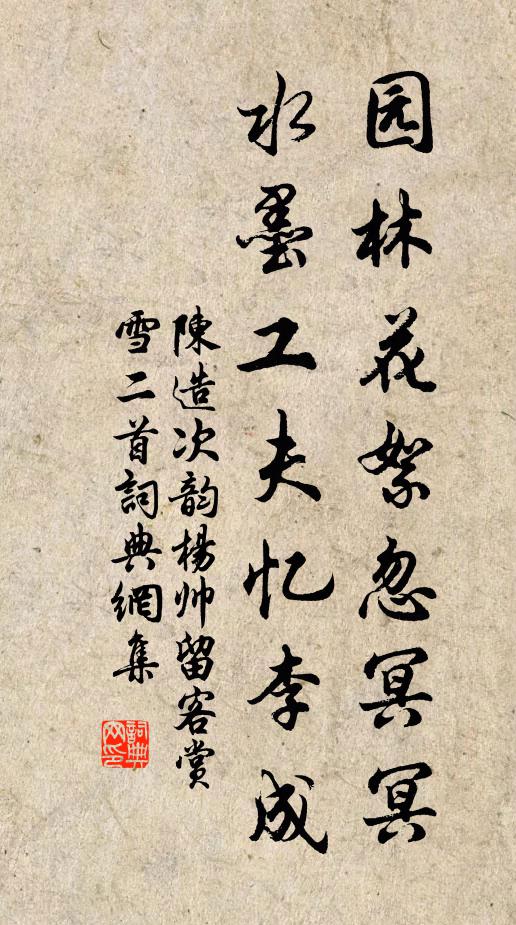 园林花絮忽冥冥
水墨工夫忆李成
陳造次韵楊帅留客赏
雪二首詞典網集
詞典網印